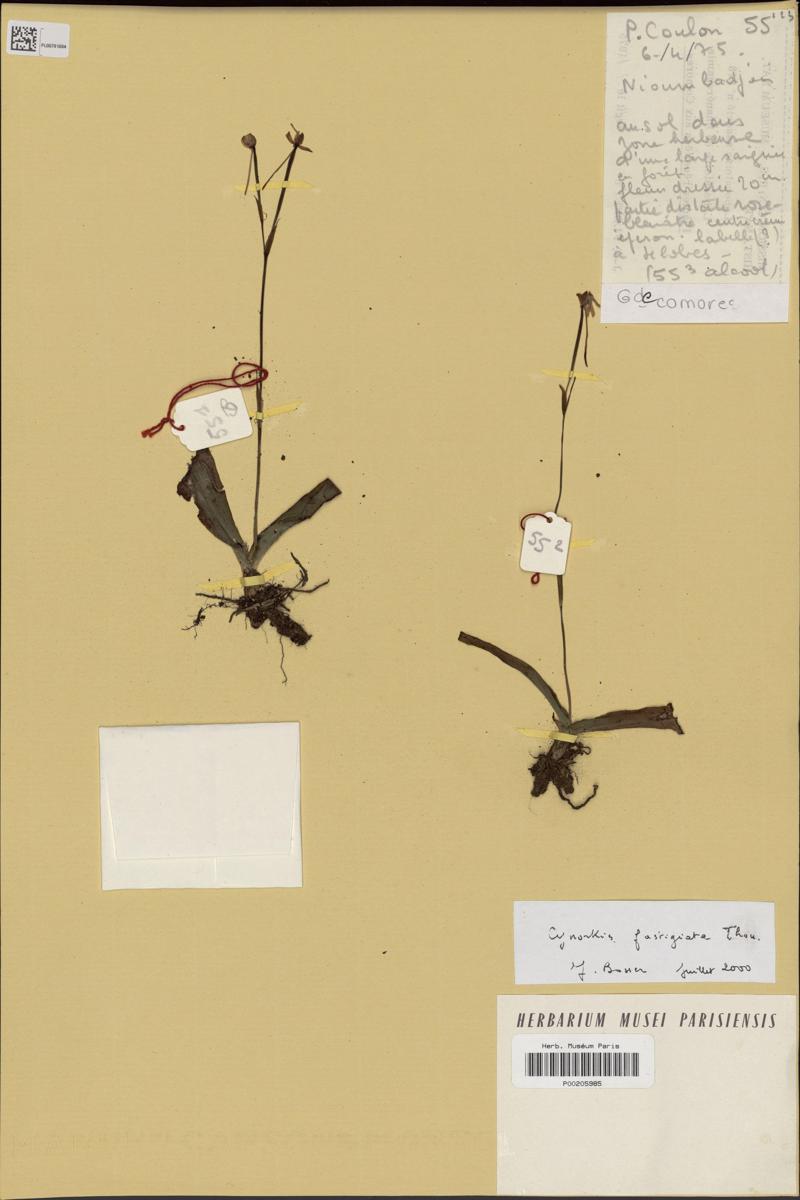 P. Coulon 55 123
6-/4/75.
Nioumbadjou
au sol dans
zone herbeuse
d'une large saignée
en forêt.
fleur dressée 20 cm
partie distale rose-
blanchâtre
éperon. labelle (?)
à 4 lobes -
(55 3 alcool)
Gde comores
55 2
Cynorkis fastigiata Thou.
J. Bosser Juillet 2000
HERBARIUM MUSEI PARISIENSIS
Herb. Muséum Paris
P00205985